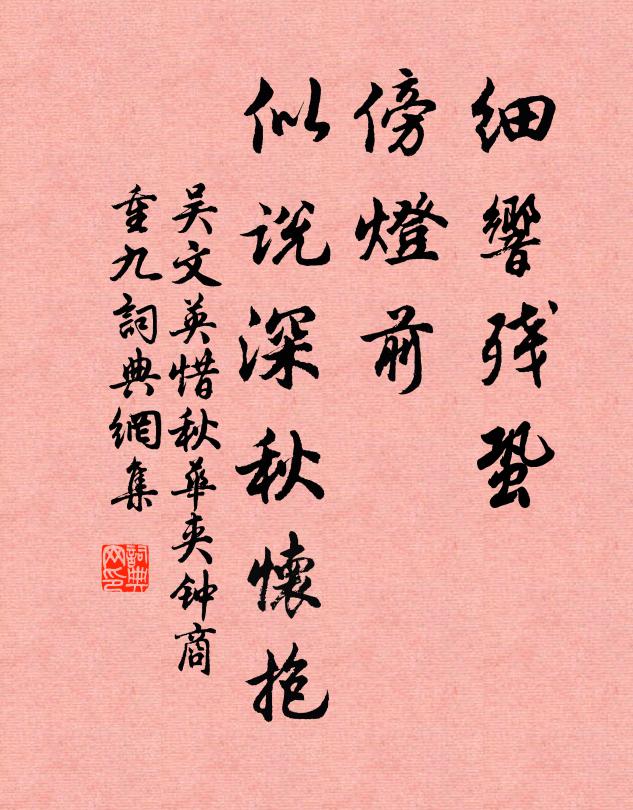 细響残蛩
傍燈前
似说深秋懷抱
吴文英惜秋華夹钟商
重九詞典網集
詞典網印